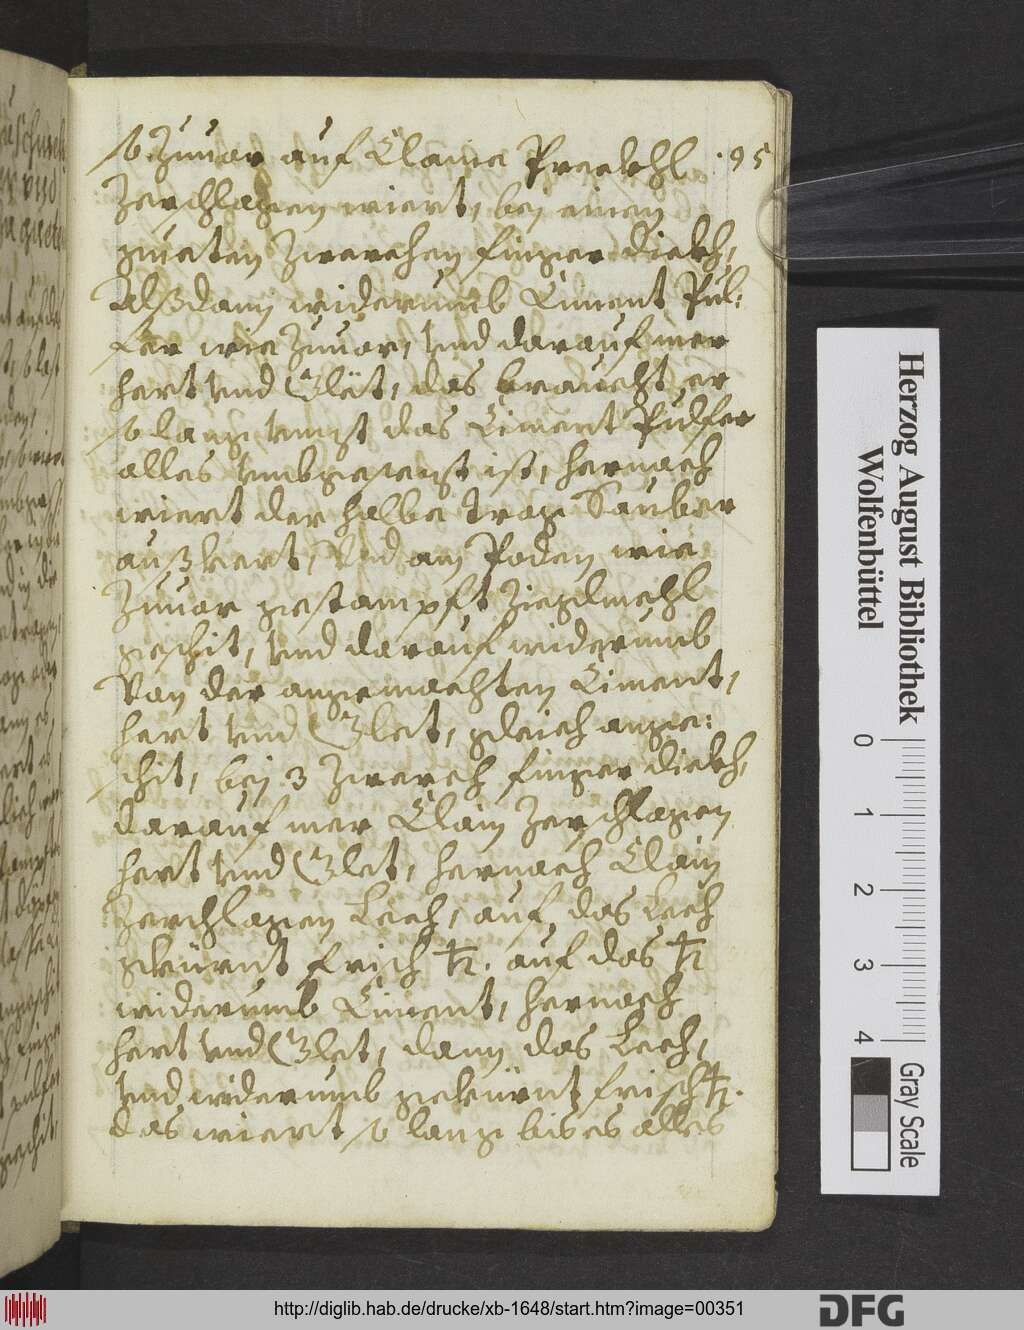 so Zuuor auf Claine Preckhl . 95
Zerschlagen wiert, bej einen
gueten Zwerchen finger dickh,
Alßdann widerumb Ciment Pul:
fer wie Zuuor, Vnd darauf mer
hert Vnd Glet, das braucht er
so lang vnnzt das Ciment Pulfer
alles vmbgesezt ist, hernach
wiert der halbe trog Sauber
außkert, Vnd am Poden wie
Zuuor gestampft Zieglmehl
geschit, Vnd darauf widerumb
Von der angemachten Ciment,
hert Vnd Glet, gleich ange:
schit, bej 3 Zwerch finger dickh,
darauf mer Clain Zerschlagen
hert Vnd Glet, hernach Clain
Zerschlagen Lech, auf das Lech
gekürnt frisch ♄. auf das ♄
widerumb Ciment, hernach
hert Vnd Glet, dann das Lech,
Vnd widerumb gekürnt frisch ♄.
das wiert so lang bis es alles
Herzog August Bibliothek
Wolfenbüttel
0 1 2 3 4
Gray Scale
http://diglib.hab.de/drucke/xb-1648/start.htm?image=00351
DFG